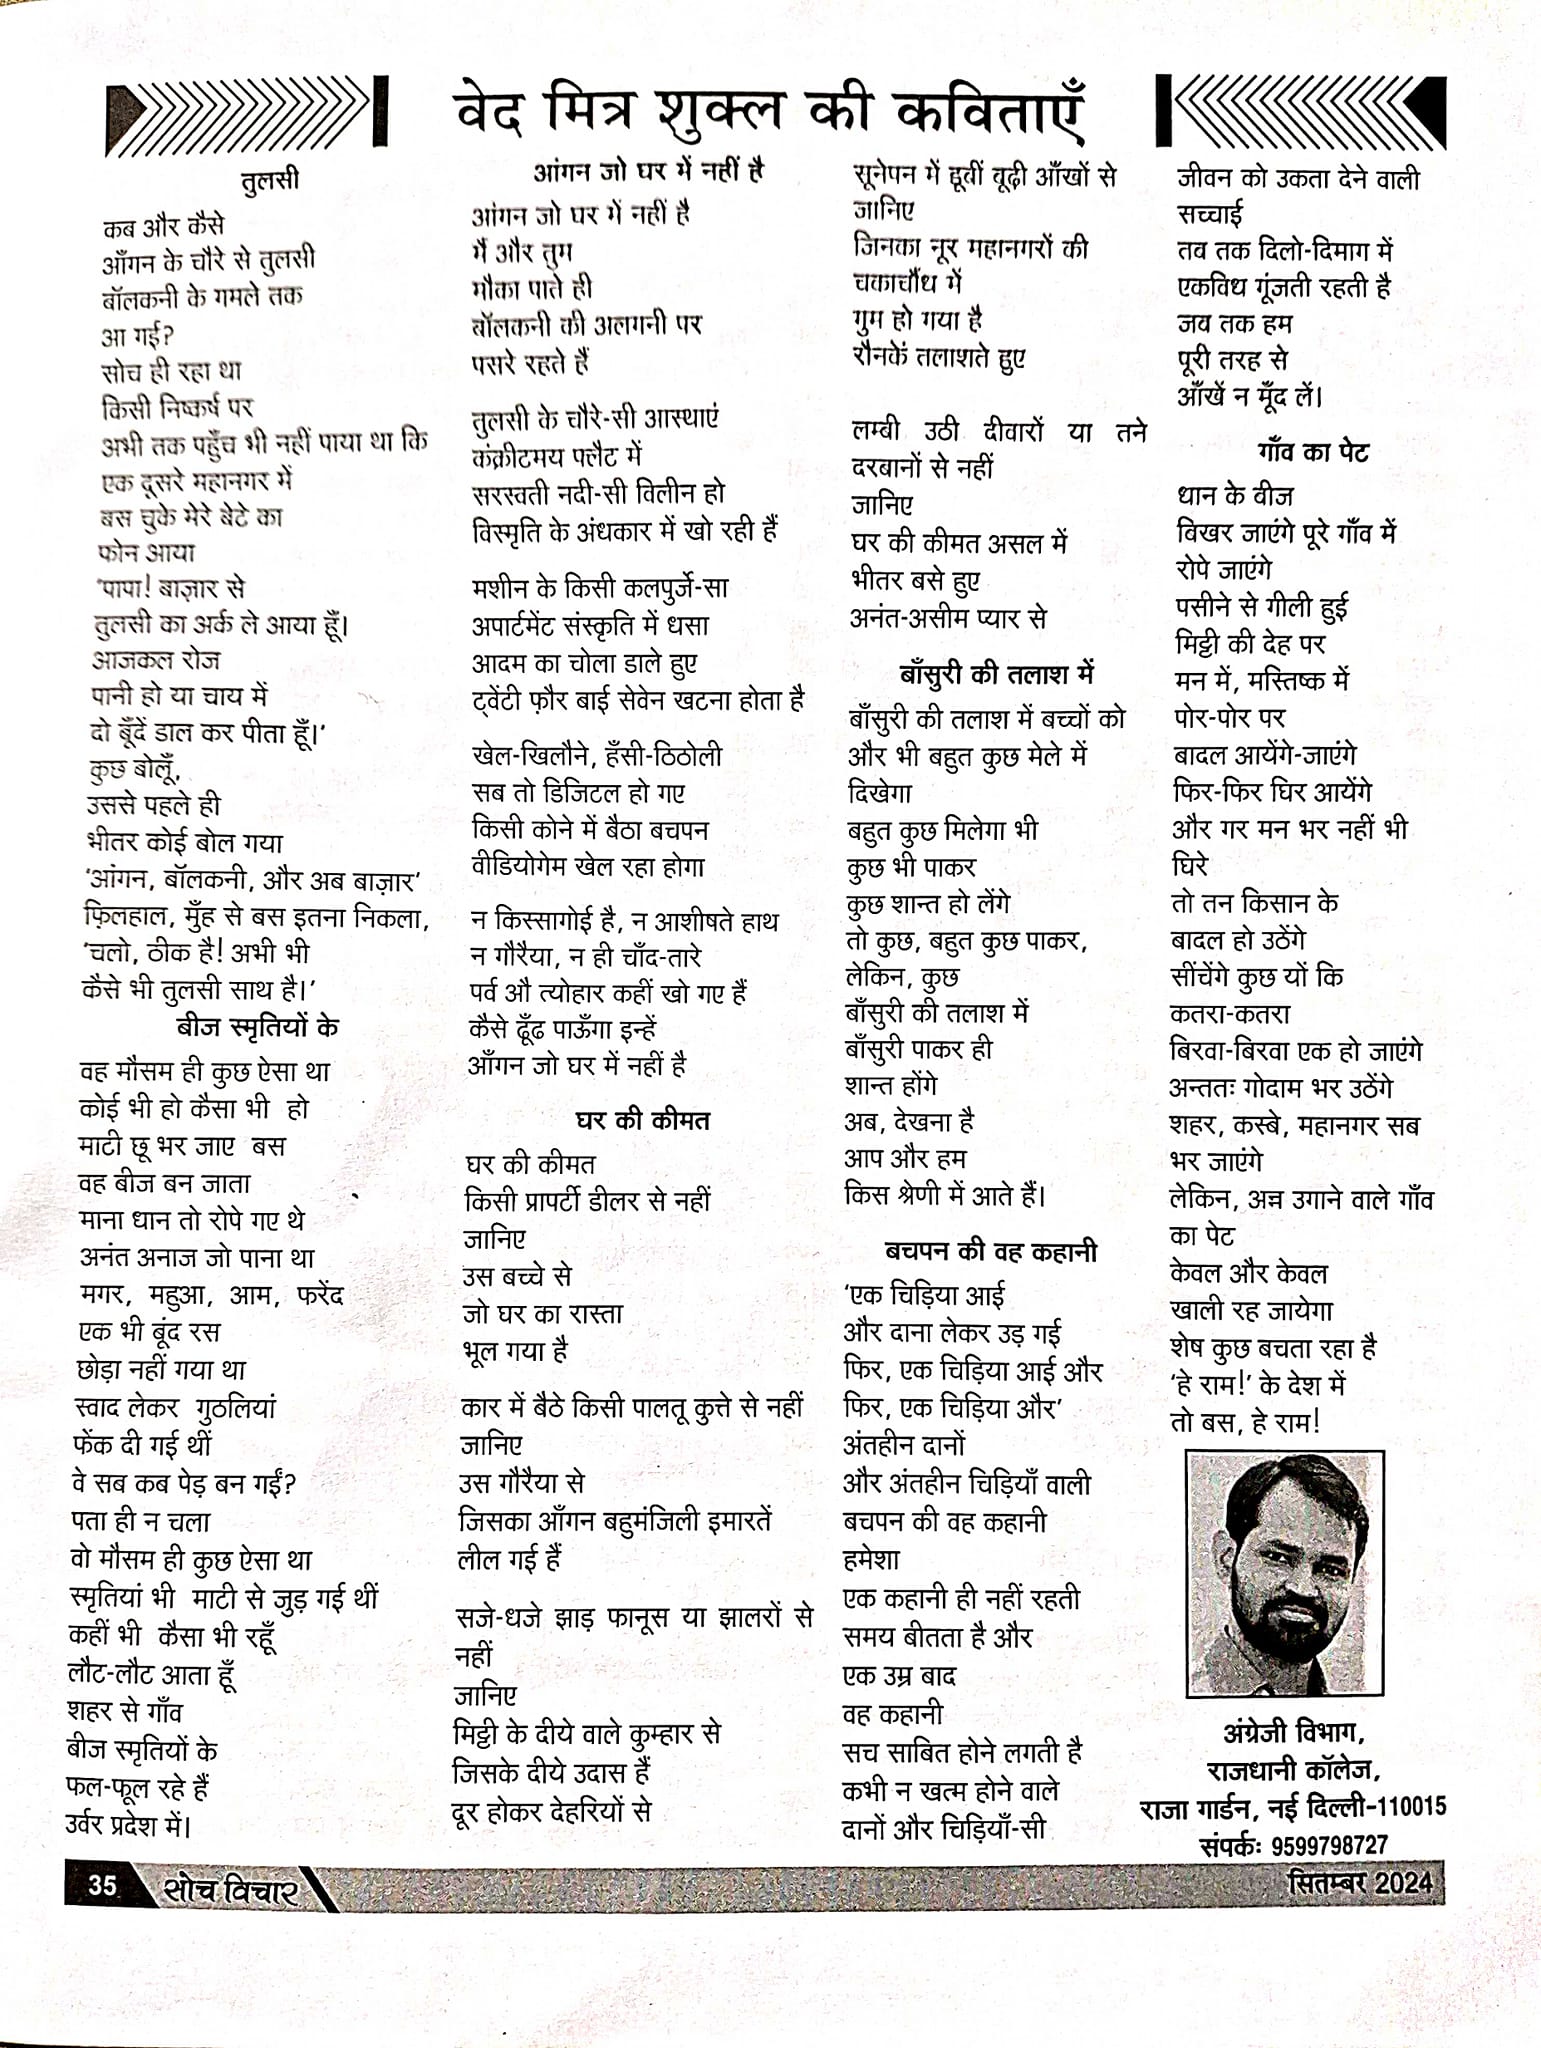 वेद मित्र शुक्ल की कविताएँ
तुलसी
कब और कैसे
आँगन के चौरे से तुलसी
बॉलकनी के गमले तक
आ गई?
सोच ही रहा था
किसी निष्कर्ष पर
अभी तक पहुँच भी नहीं पाया था कि
एक दूसरे महानगर में
बस चुके मेरे बेटे का
फोन आया
'पापा! बाज़ार से
तुलसी का अर्क ले आया हूँ।
आजकल रोज
पानी हो या चाय में
दो बूँदें डाल कर पीता हूँ।'
कुछ बोलूँ,
उससे पहले ही
भीतर कोई बोल गया
'आंगन, बॉलकनी, और अब बाज़ार'
फ़िलहाल, मुँह से बस इतना निकला,
'चलो, ठीक है! अभी भी
कैसे भी तुलसी साथ है।'
बीज स्मृतियों के
वह मौसम ही कुछ ऐसा था
कोई भी हो कैसा भी हो
माटी छू भर जाए बस
वह बीज बन जाता
माना धान तो रोपे गए थे
अनंत अनाज जो पाना था
मगर, महुआ, आम, फरेंद
एक भी बूंद रस
छोड़ा नहीं गया था
स्वाद लेकर गुठलियां
फेंक दी गई थीं
वे सब कब पेड़ बन गईं?
पता ही न चला
वो मौसम ही कुछ ऐसा था
स्मृतियां भी माटी से जुड़ गई थीं
कहीं भी कैसा भी रहूँ
लौट-लौट आता हूँ
शहर से गाँव
बीज स्मृतियों के
फल-फूल रहे हैं
उर्वर प्रदेश में।
आंगन जो घर में नहीं है
आंगन जो घर में नहीं है
मैं और तुम
मौका पाते ही
बॉलकनी की अलगनी पर
पसरे रहते हैं
तुलसी के चौरे-सी आस्थाएं
कंक्रीटमय फ्लैट में
सरस्वती नदी-सी विलीन हो
विस्मृति के अंधकार में खो रही हैं
मशीन के किसी कलपुर्जे-सा
अपार्टमेंट संस्कृति में धसा
आदम का चोला डाले हुए
ट्वेंटी फ़ौर बाई सेवेन खटना होता है
खेल-खिलौने, हँसी-ठिठोली
सब तो डिजिटल हो गए
किसी कोने में बैठा बचपन
वीडियोगेम खेल रहा होगा
न किस्सागोई है, न आशीषते हाथ
न गौरैया, न ही चाँद-तारे
पर्व औ त्योहार कहीं खो गए हैं
कैसे ढूँढ पाऊँगा इन्हें
आँगन जो घर में नहीं है
घर की कीमत
घर की कीमत
किसी प्रापर्टी डीलर से नहीं
जानिए
उस बच्चे से
जो घर का रास्ता
भूल गया है
कार में बैठे किसी पालतू कुत्ते से नहीं
जानिए
उस गौरैया से
जिसका आँगन बहुमंजिली इमारतें
लील गई हैं
सजे-धजे झाड़ फानूस या झालरों से
नहीं
जानिए
मिट्टी के दीये वाले कुम्हार से
जिसके दीये उदास हैं
दूर होकर देहरियों से
सूनेपन में डूबीं बूढ़ी आँखों से
जानिए
जिनका नूर महानगरों की
चकाचौंध में
गुम हो गया है
रौनकें तलाशते हुए
लम्बी उठी दीवारों या तने
दरबानों से नहीं
जानिए
घर की कीमत असल में
भीतर बसे हुए
अनंत-असीम प्यार से
बाँसुरी की तलाश में
बाँसुरी की तलाश में बच्चों को
और भी बहुत कुछ मेले में
दिखेगा
बहुत कुछ मिलेगा भी
कुछ भी पाकर
कुछ शान्त हो लेंगे
तो कुछ, बहुत कुछ पाकर,
लेकिन, कुछ
बाँसुरी की तलाश में
बाँसुरी पाकर ही
शान्त होंगे
अब, देखना है
आप और हम
किस श्रेणी में आते हैं।
बचपन की वह कहानी
'एक चिड़िया आई
और दाना लेकर उड़ गई
फिर, एक चिड़िया आई और
फिर, एक चिड़िया और'
अंतहीन दानों
और अंतहीन चिड़ियाँ वाली
बचपन की वह कहानी
हमेशा
एक कहानी ही नहीं रहती
समय बीतता है और
एक उम्र बाद
वह कहानी
सच साबित होने लगती है
कभी न खत्म होने वाले
दानों और चिड़ियाँ-सी
जीवन को उकता देने वाली
सच्चाई
तब तक दिलो-दिमाग में
एकविध गूंजती रहती है
जब तक हम
पूरी तरह से
आँखें न मूँद लें।
गाँव का पेट
धान के बीज
बिखर जाएंगे पूरे गाँव में
रोपे जाएंगे
पसीने से गीली हुई
मिट्टी की देह पर
मन में, मस्तिष्क में
पोर-पोर पर
बादल आयेंगे-जाएंगे
फिर-फिर घिर आयेंगे
और गर मन भर नहीं भी
घिरे
तो तन किसान के
बादल हो उठेंगे
सींचेंगे कुछ यों कि
कतरा-कतरा
बिरवा-बिरवा एक हो जाएंगे
अन्ततः गोदाम भर उठेंगे
शहर, कस्बे, महानगर सब
भर जाएंगे
लेकिन, अन्न उगाने वाले गाँव
का पेट
केवल और केवल
खाली रह जायेगा
शेष कुछ बचता रहा है
'हे राम!' के देश में
तो बस, हे राम!
अंग्रेजी विभाग,
राजधानी कॉलेज,
राजा गार्डन, नई दिल्ली-110015
संपर्कः 9599798727
35 सोच विचार
सितम्बर 2024